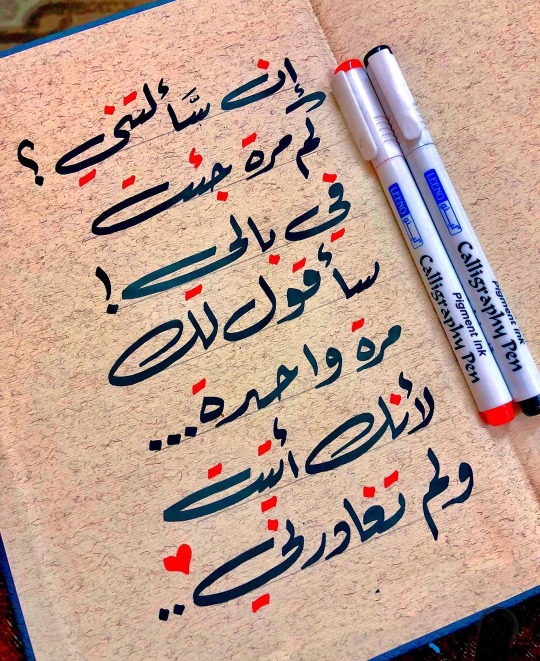 إن سَألتني ؟
كم مرة جئت
في بالي !
سأقول لك
مرة واحدة...
لأنك أتيت
ولم تغادرني..
LEENO
Calligraphy Pen
Pigment ink
LEENO
Calligraphy Pen
Pigment ink